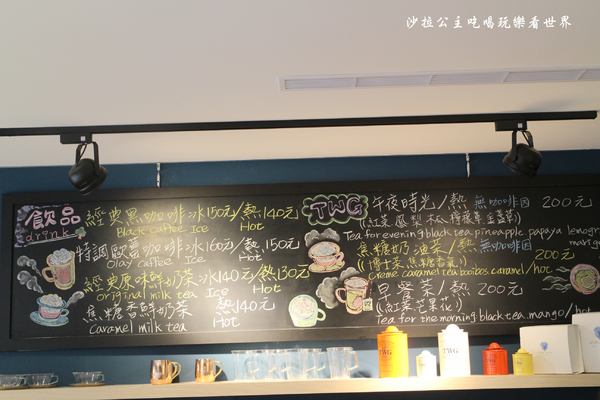 沙拉公主吃喝玩樂看世界
飲品
drink
經典黑咖啡 冰150元/熱140元
Black coffee Ice Hot
特調歐蕾咖啡 冰160元/熱150元
Olay caffee Ice Hot
經典原味鮮奶茶 冰140元/熱130元
Original milk tea Ice Hot
焦糖香鮮奶茶 熱140元
Caramel milk tea Hot
TWG
午夜時光/熱 無咖啡因 200元
Tea for evening black tea pineapple papaya lemongr
焦糖奶油茶/熱 無咖啡因
(博士茶.焦糖香氣) 200元
Creme caramel tea booibos caramel/hot
早餐茶/熱 200元
(紅茶.芒果花)
Tea for the morning black tea.mango/hot
TWG
TWG